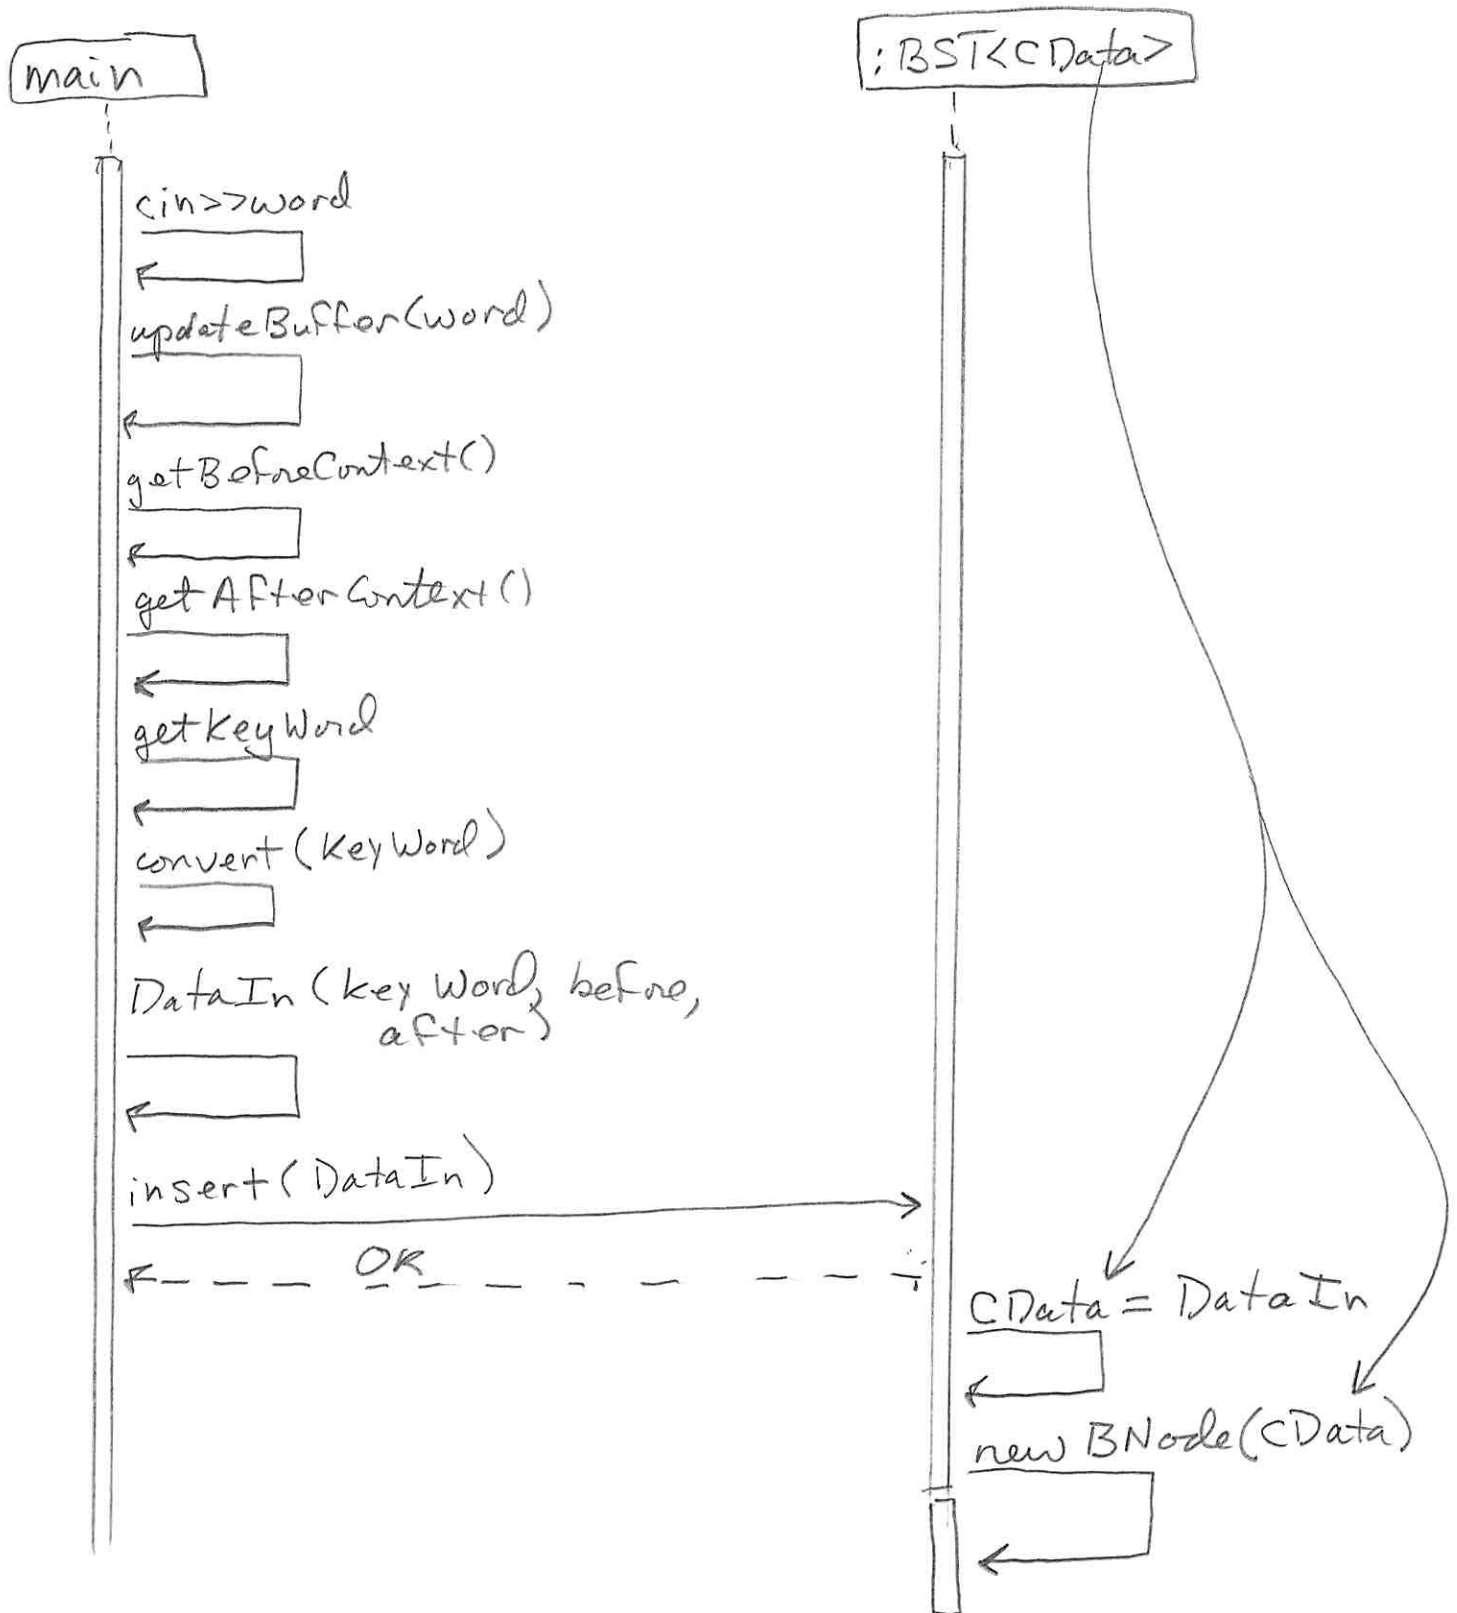 main
:BST<CData>
cin>>word
updateBuffer(word)
getBeforeContext()
getAfterContext()
getKeyWord
convert(KeyWord)
DataIn(key Word, before,
after)
insert(DataIn)
OK
CData = DataIn
new BNode(CData)